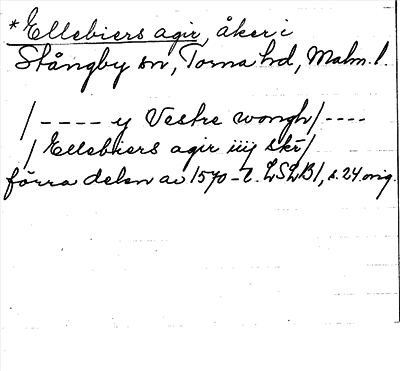 *Ellebiers agir, åker i
Stångby sn, Torna hd, Malm. l.
/---- y Vestre wongh/----
/ Ellebiers agir iiij skr/
förra delen av 1570-t. LSLB1, s. 24 orig.